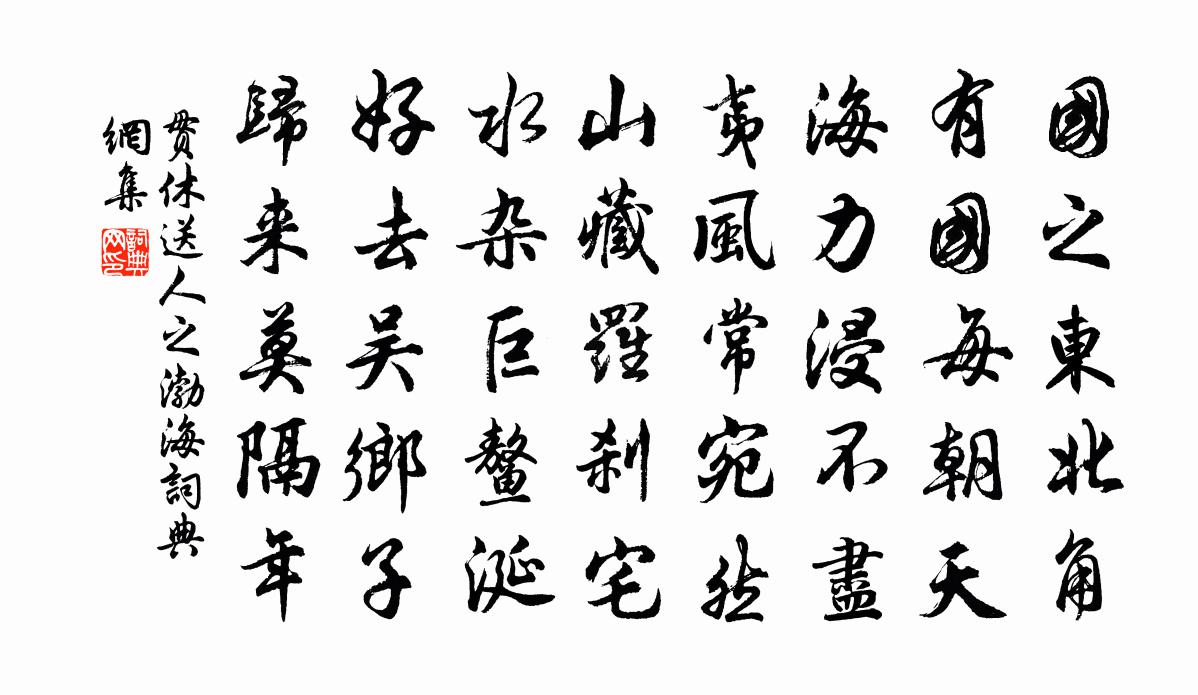 國之東北角
有國每朝天
海力浸不盡
夷風常宛然
山藏羅刹宅
水杂巨鼇涎
好去吴鄉子
歸来莫隔年
贯休送人之渤海詞典
網集
詞典
网印